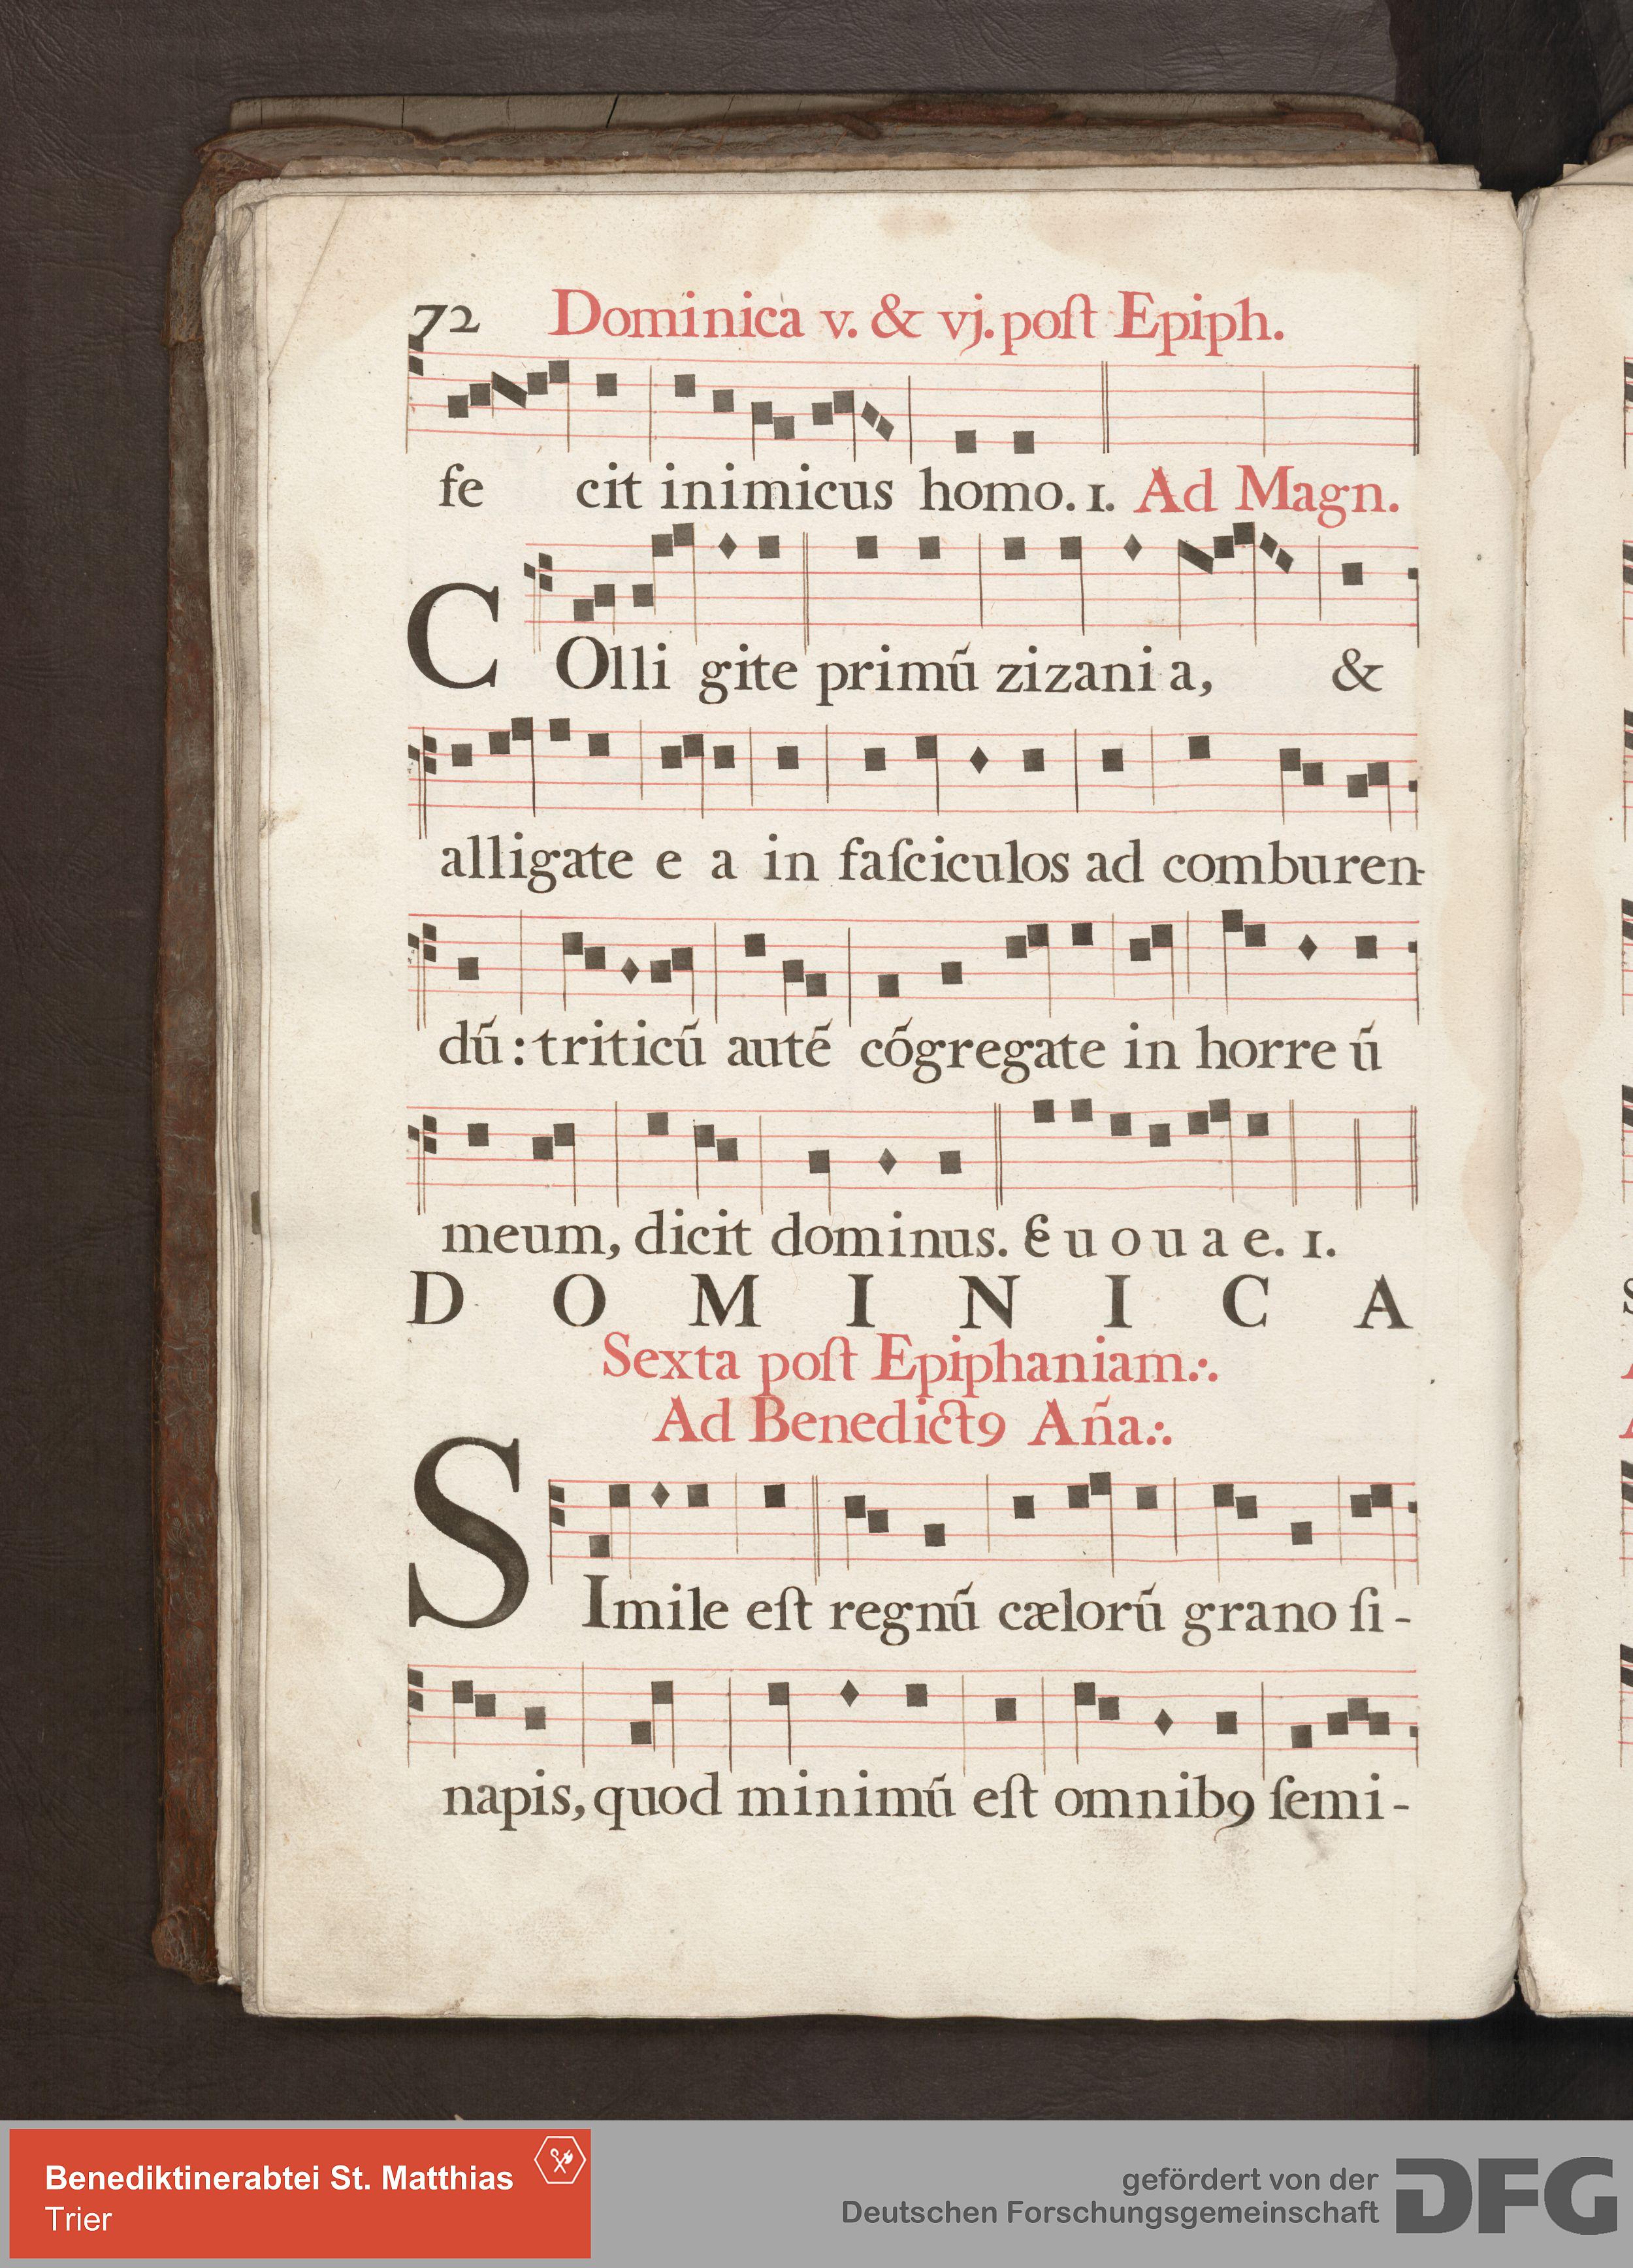 72 Dominica v. & vj. poſt Epiph.
fe cit inimicus homo. 1. Ad Magn.
COlli gite primū zizani a, &
alligate e a in faſciculos ad comburen-
dū : triticū autē cōgregate in horre ū
meum, dicit dominus. E u o u a e. 1.
D O M I N I C A
Sexta poſt Epiphaniam.:.
Ad Benedictꝯ Aña.:.
SImile eſt regnū cælorū grano ſi-
napis, quod minimū eſt omnibꝯ ſemi-
Benediktinerabtei St. Matthias
Trier
gefördert von der
Deutschen Forschungsgemeinschaft
DFG